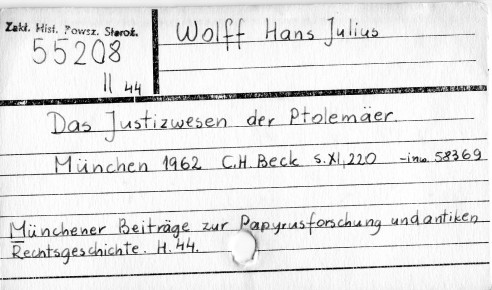 Zakł. Hist. Powsz. Staroż.
55208
II 44
Wolff Hans Julius
Das Justizwesen der Ptolemäer.
München 1962 C.H. Beck s. XI, 220 - inw. 58369
Münchener Beiträge zur Papyrusforschung und antiken
Rechtsgeschichte. H. 44.